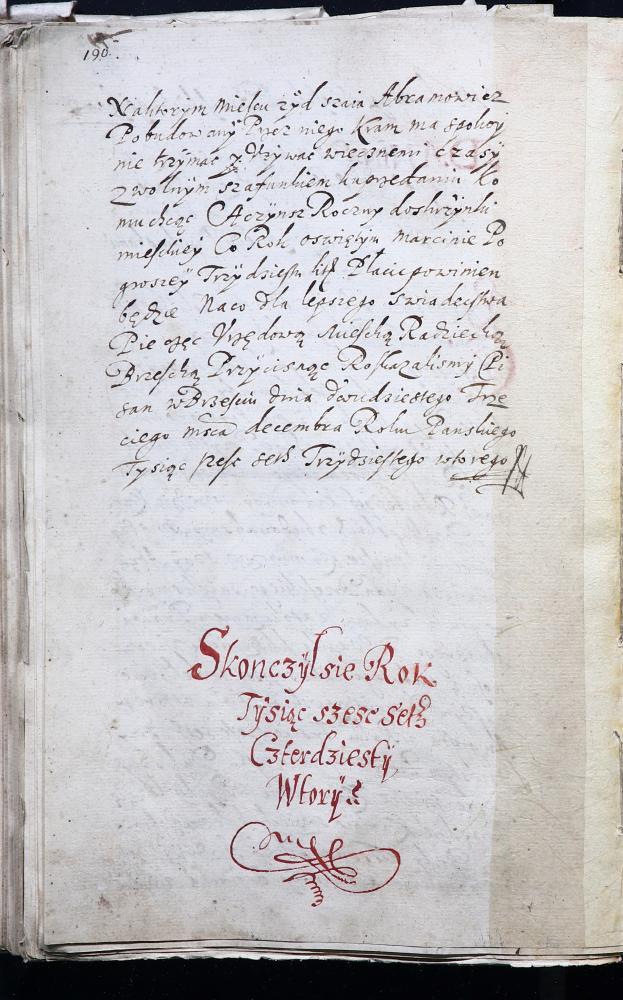 190.
Naktorym miescu zyd szaia Abramowicz
Pobudowany Przez niego Kram ma spokoy
nie trzymac y Uzywac wiecznemi czasy
zwolnym szafunkiem
mu chcąc Aczynsz Roczny doskrzynki
mieskiey Co Rok oswiętym Marcinie Po
groszey Trzydziestu Płacic powinien
będzie Naco dla lepszego swiadectwa
Pieczęc Urzędową Mieską Radziecką
Brzeską Przycisnąc Roskazalismy Pi
san wBrzesciu dnia dwudziestego Trze
ciego msca decembra Roku Panskiego
Tysiąc szesc seth Trzydziestego wtorego
Skonczyl sie Rok
Tysiąc szesc Seth
Czterdziesty
Wtory